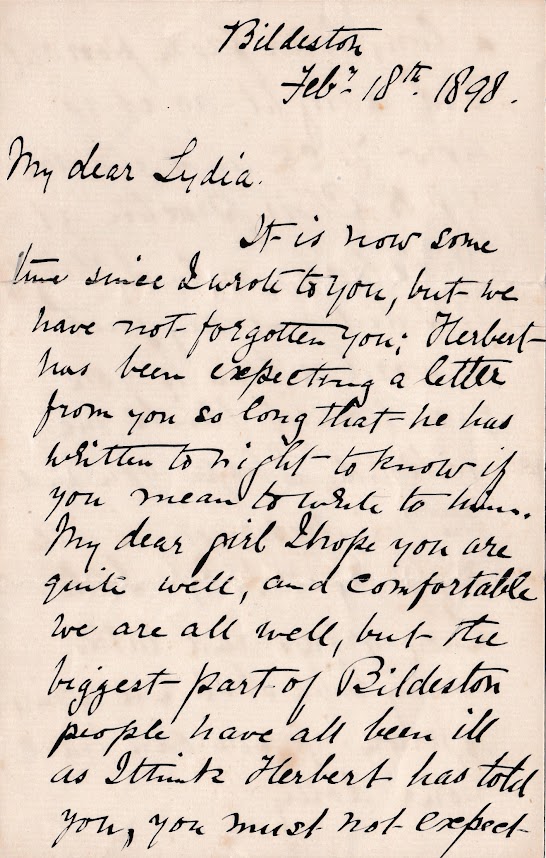 Bildeston
Feby 18th 1898.
My dear Lydia.
It is now some
time since I wrote to you, but we
have not forgotten you; Herbert
has been expecting a letter
from you so long that he has
written to night to know if
you mean to write to him.
My dear girl I hope you are
quite well, and comfortable
we are all well, but the
biggest part of Bildeston
people have all been ill
as I think Herbert has told
you, you must not expect